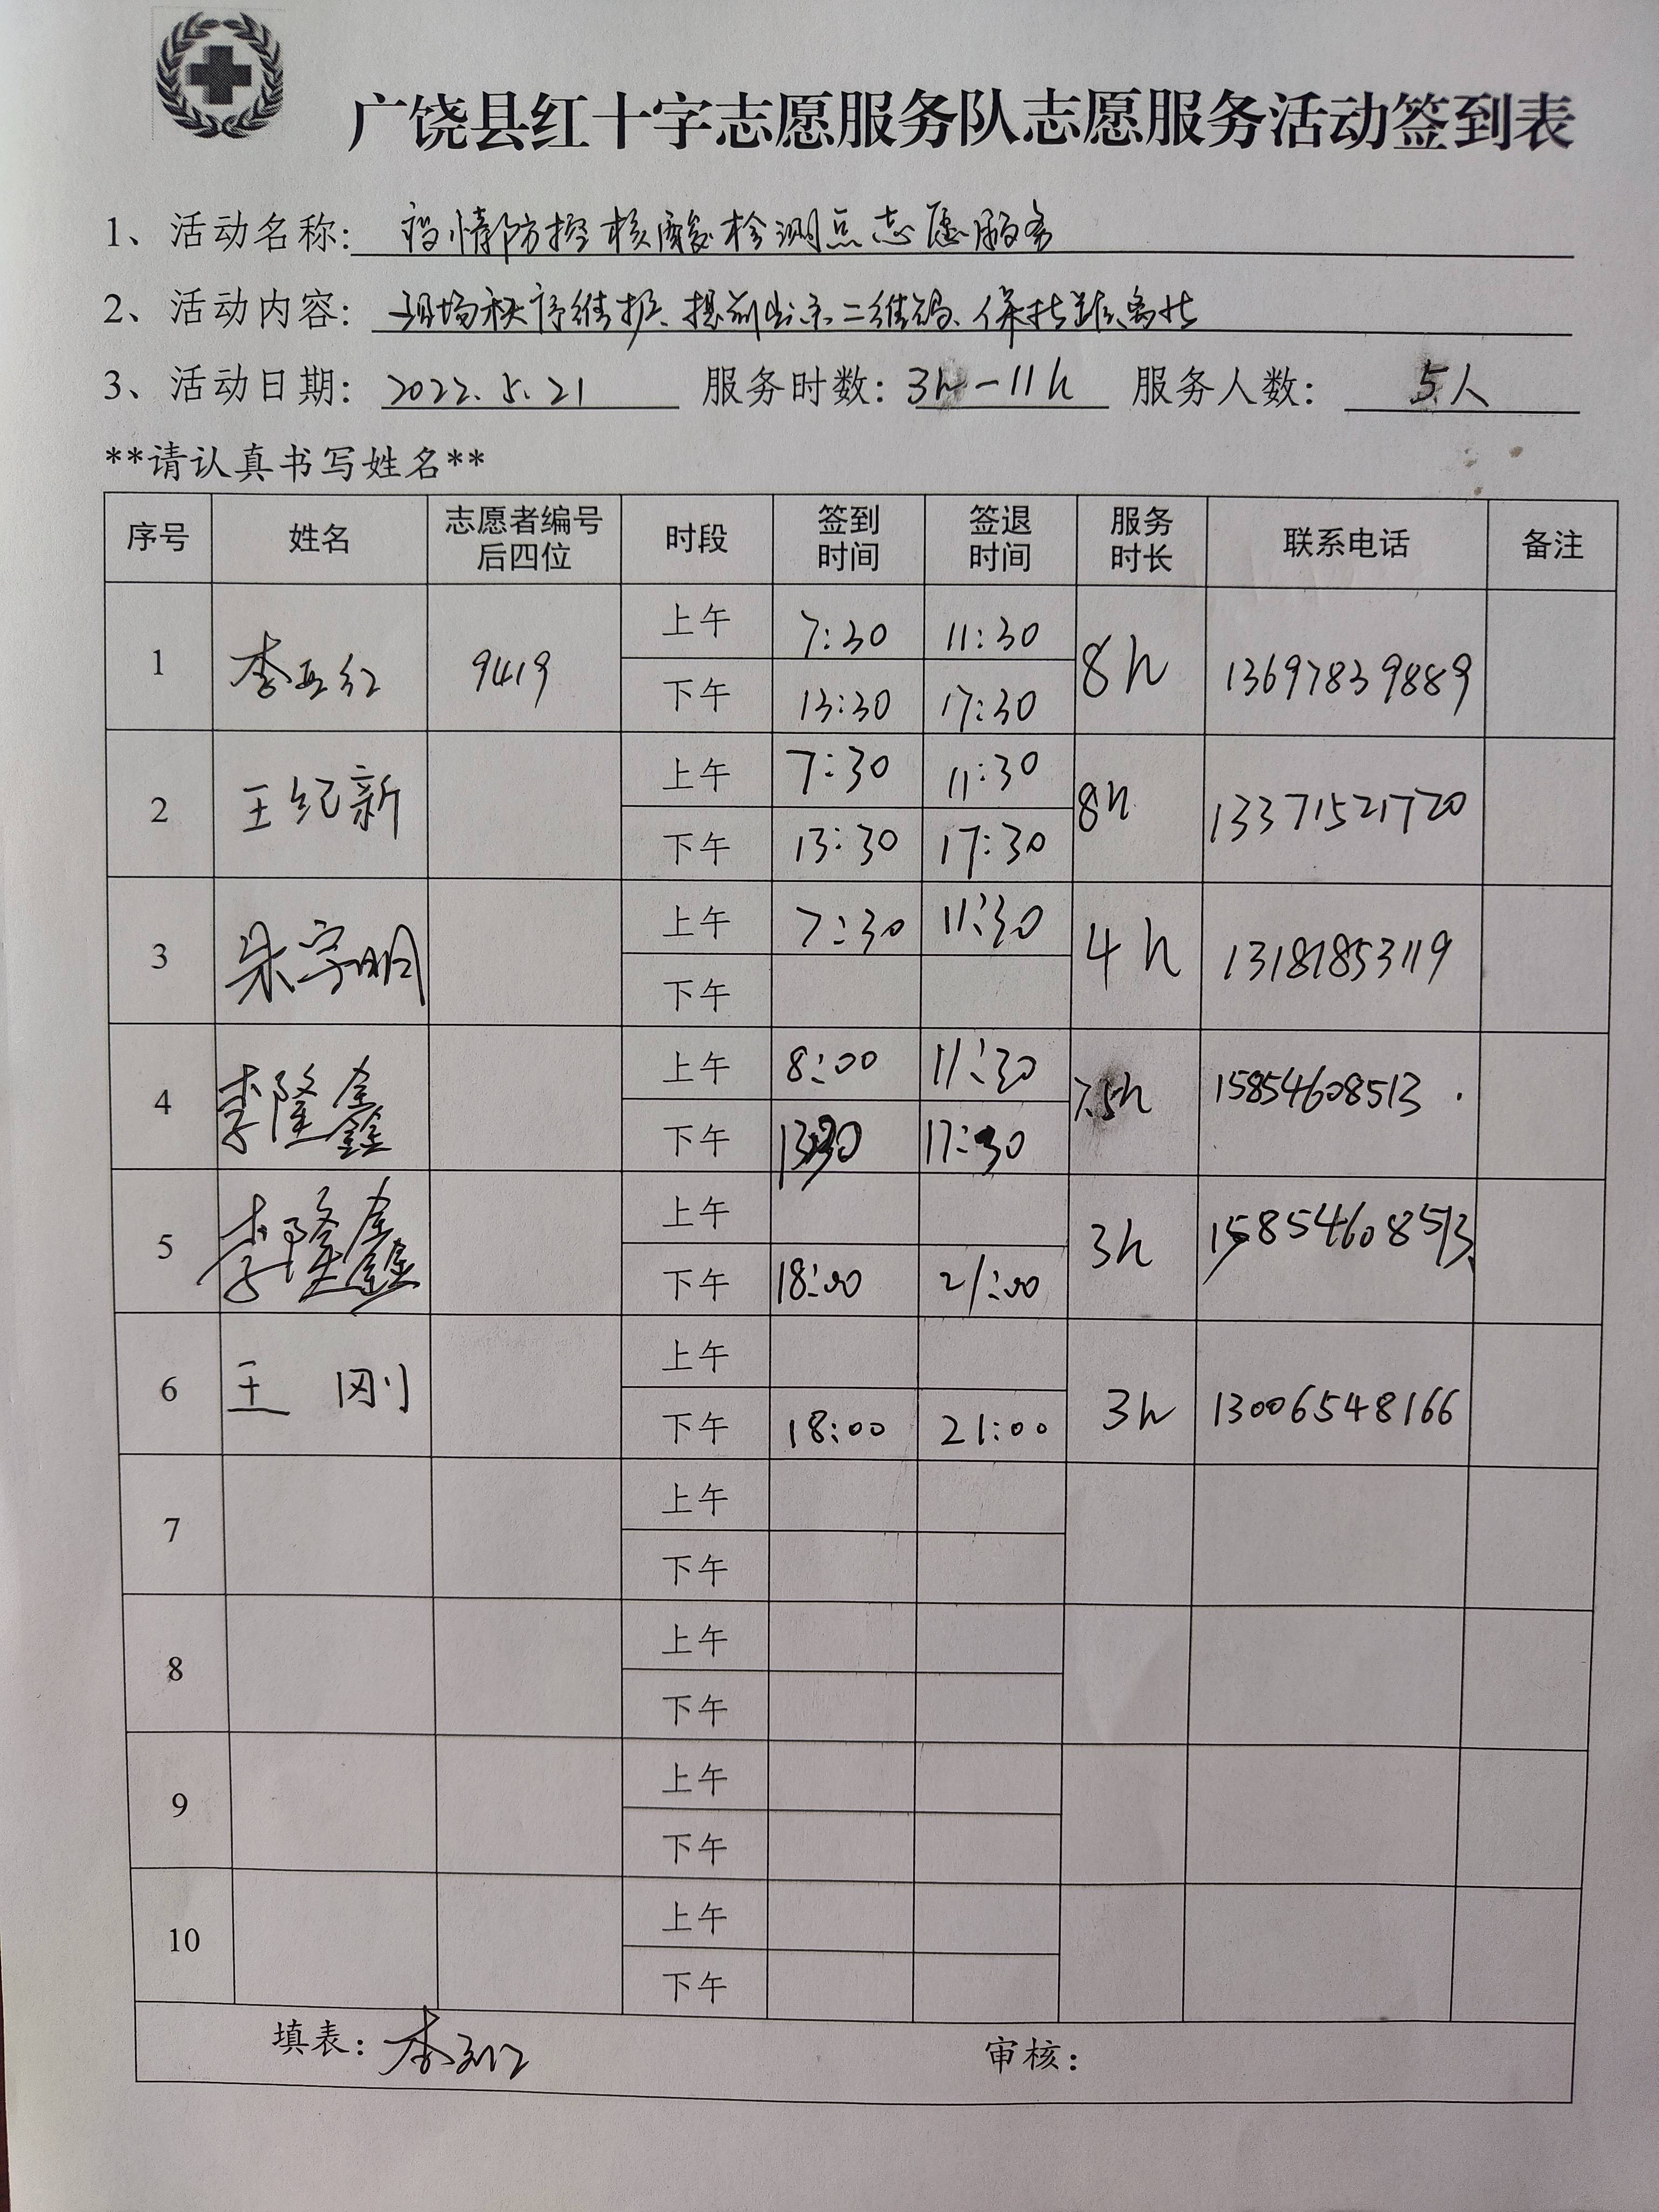 广饶县红十字志愿服务队志愿服务活动签到表
1、活动名称: 疫情防控核酸检测点志愿服务
2、活动内容: 现场秩序维护、提前出示二维码、保持距离等
3、活动日期: 2022.5.21 服务时数: 3h-11h 服务人数: 5人
**请认真书写姓名**
序号 姓名 志愿者编号后四位 时段 签到时间 签退时间 服务时长 联系电话 备注
1 李红 9419 上午 7:30 11:30 8h 13697839889
下午 13:30 17:30
2 王纪新 上午 7:30 11:30 8h 13371521720
下午 13:30 17:30
3 朱宇明 上午 7:30 11:30 4h 13181853119
下午
4 李隆鑫 上午 8:00 11:30 7.5h 15854608513
下午 13:30 17:30
5 李隆鑫 上午 3h 15854608513
下午 18:00 21:00
6 王刚 上午 3h 13006548166
下午 18:00 21:00
7 上午
下午
8 上午
下午
9 上午
下午
10 上午
下午
填表: 李红 审核: